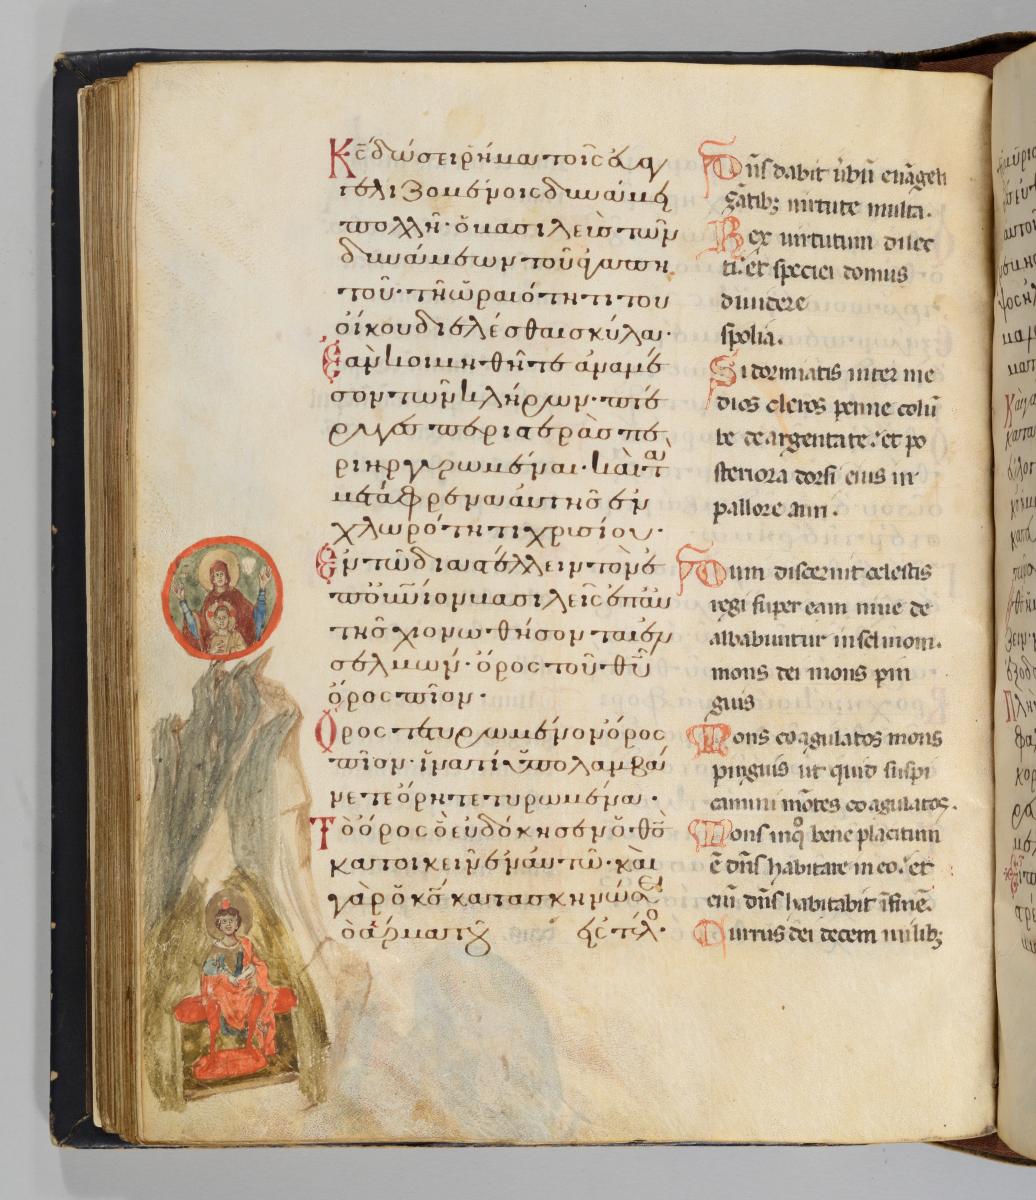 Κ̅ϲ̅ δώσει ῥῆμα τοῖς εὐαγ
γελιζομένοις δυνάμει
πολλῆ· ὁ βασιλεὺς τῶν
δυνάμεων τοῦ ἀγαπη
τοῦ· τῆ ὡραιότητι τοῦ
οἴκου διελέσθαι σκύλα·
Ἐὰν κοιμηθῆτε ἀναμέ
σον τῶν κλήρων· πτέ
ρυγες περιστερᾶς πε
ριηργυρωμέναι· καὶ τὰ
μετάφρενα αὐτῆς ἐν
χλωρότητι χρυσίου·
Ἐν τῶ διαστέλλειν τὸν ἐ
πουράνιον βασιλεῖς ἐπ᾽ αὐ
τῆς χιονωθήσονται ἐν
σελμών· ὄρος τοῦ θ̅υ̅
ὄρος πῖον·
Ὄρος τετυρωμένον ὄρος
πῖον· ἱνατί ὑπολαμβά
νετε ὄρη τετυρωμένα·
Τὸ ὄρος ὃ εὐδόκησεν ὁ θ̅ϲ̅
κατοικεῖν ἐν αὐτῶ· καὶ
γὰρ ὁ κ̅ϲ̅ κατασκηνώσει
εἰς τέλος·
τὸ ἅρμα τοῦ
Dñs dabit ùbũ euãgeli
zãtibꝫ uirtute multa.
Rex uirtutum dilec
ti. et speciei domus
diuidere
spolia.
Si dormiatis inter me
dios cleros penne colũ
be deargentate. et po
steriora dorsi eius in
pallore auri.
Dum discernit celestis
regi super eam niue de
albabuntur in selmon.
mons dei mons pin
guis
Mons coagulatos mons
pinguis ut quid suspi
camini mõtes coagulatos.
Mons inqº bene placitum
ē dñs habitare in eo. et
eni dñs habitabit ĩ finẽ.
Currus dei decem milibꝫ